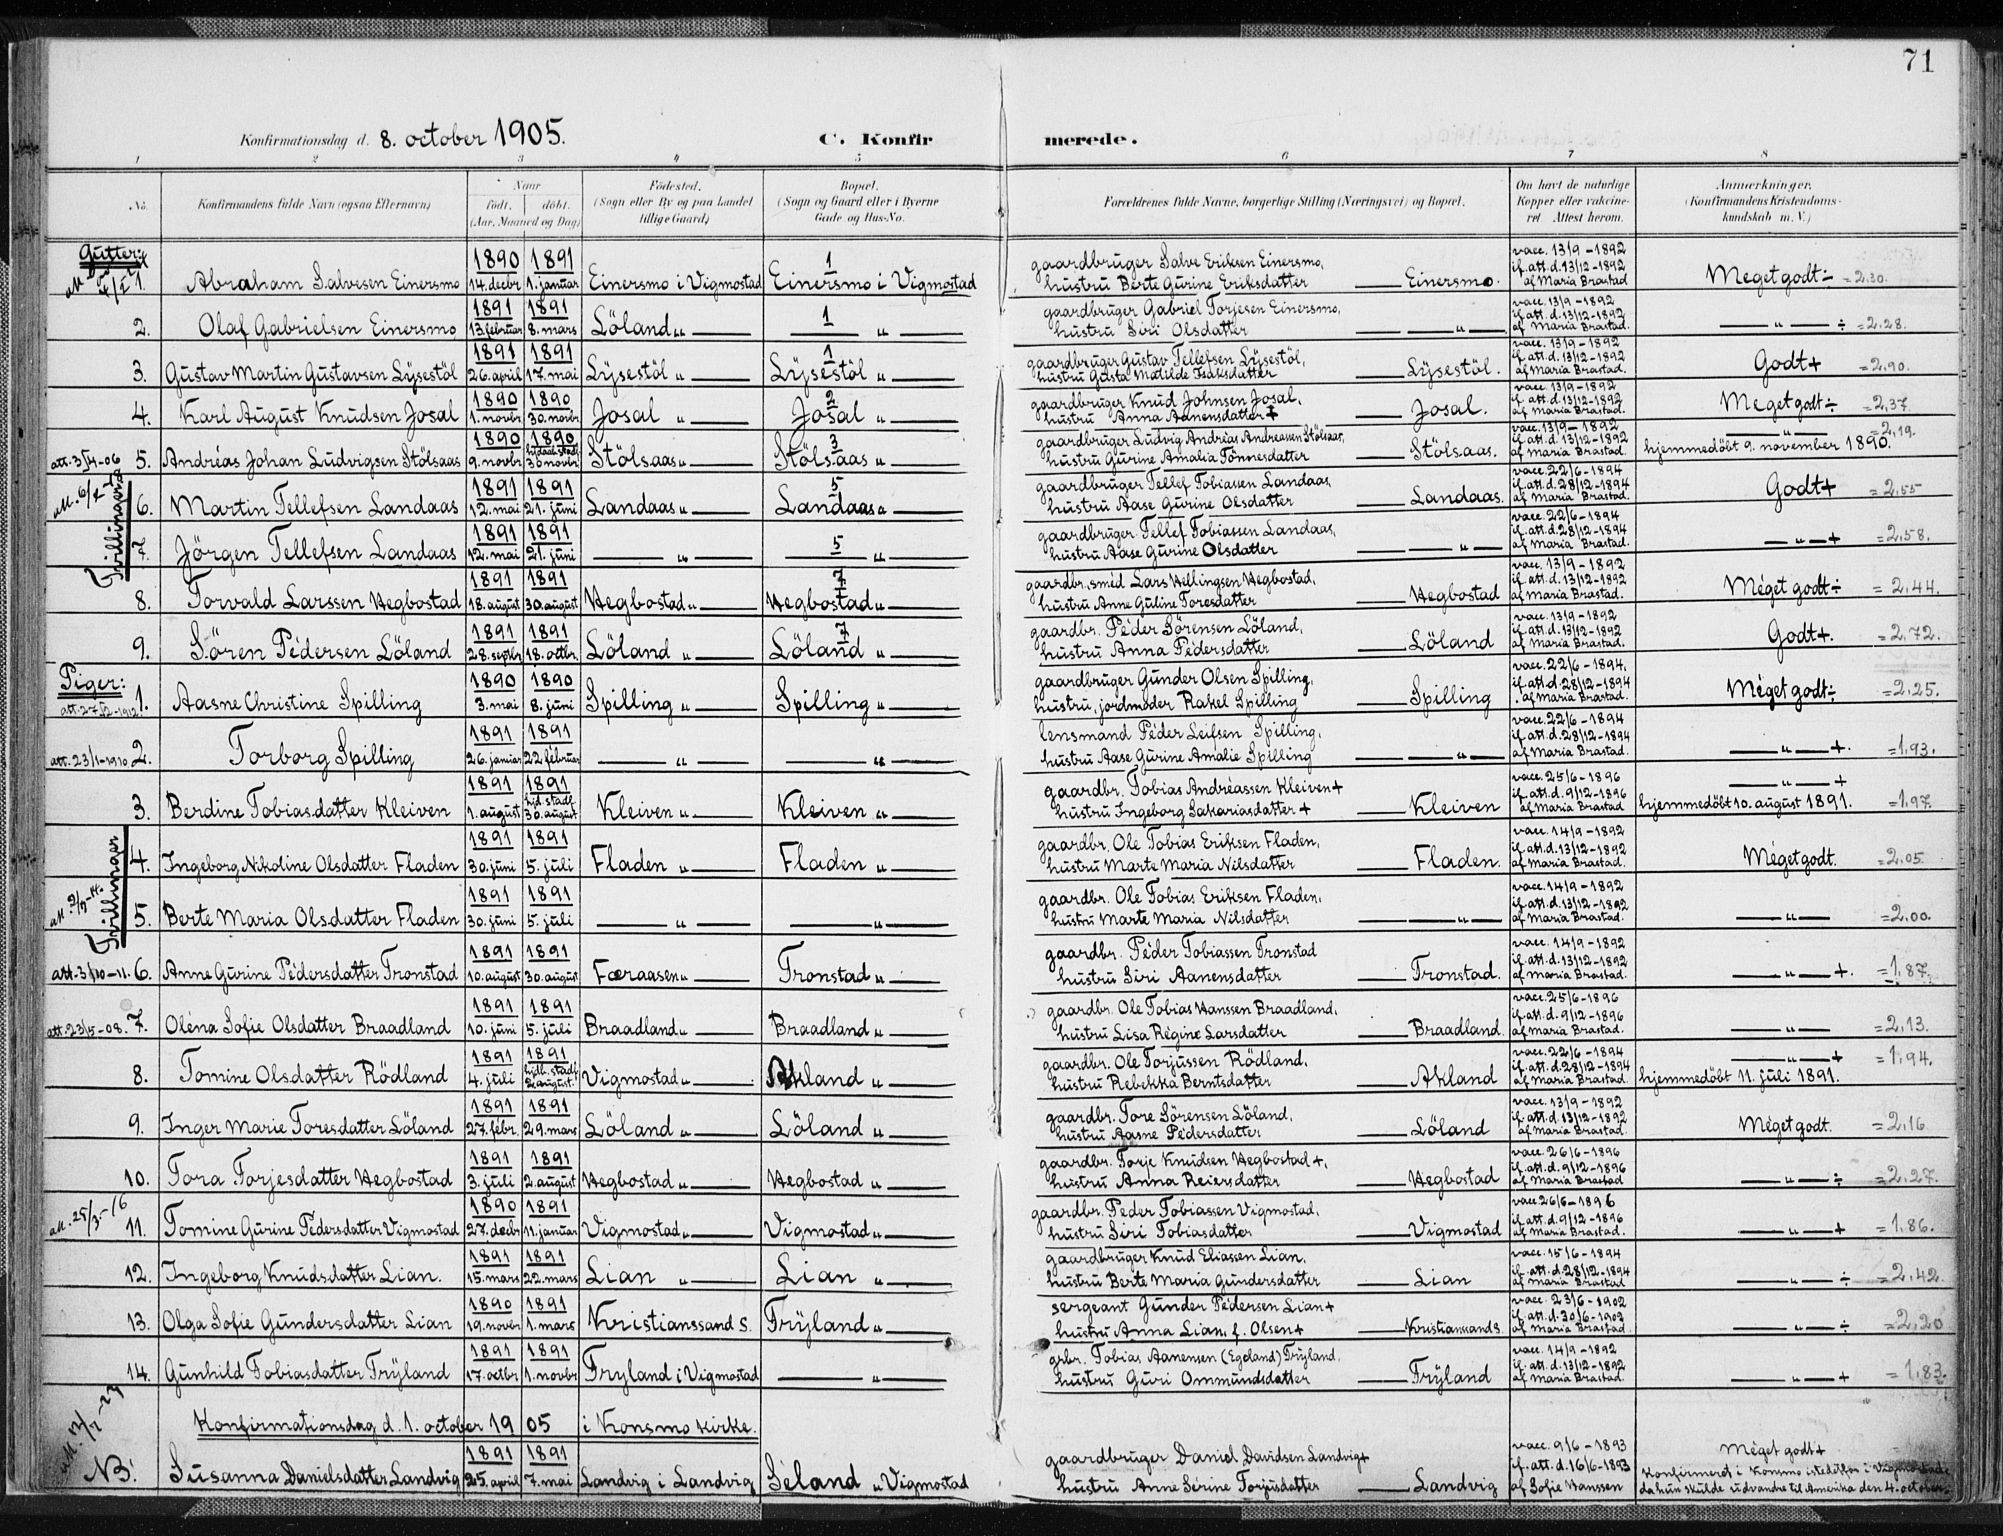 71
Konfirmationsdag d. 8. october 1905. C. Konfirmerede.
1 2 3 4 5 6 7 8
No. Konfirmandens fulde Navn (ogsaa Efternavn) Naar født. døbt. (Aar, Maaned og Dag) Födested. (Sogn eller By og paa Landet tillige Gaard) Bopæl. (Sogn og Gaard eller i Byerne Gade og Hus-No. Forældrenes fulde Navne, borgerlige Stilling (Næringsvei) og Bopæl. Om havt de naturlige Kopper eller vakcineret Attest herom. Anmærkninger. (Konfirmandens Kristendomskundskab m. V.)
Gutter:
1. Abraham Salvesen Einersmo 1890 14. decbr 1891 1. januar Einersmo i Vigmostad 1 Einersmo i Vigmostad gaardbruger Salve Eriksen Einersmo, hustru Berte Gurine Eriksdatter — Einersmo. vacc. 13/9-1892 if. att. d. 13/12-1892 af Maria Brastad Meget godt ÷ =2.30.
2. Olaf Gabrielsen Einersmo 1891 13. februar 1891 8. mars Löland „ — 1 „ — gaardbruger Gabriel Torjesen Einersmo, hustru Siri Olsdatter — „ — vacc. 13/9-1892 if. att. d. 13/12-1892 af Maria Brastad. — „ — ÷ =2.28.
3. Gustav Martin Gustavsen Lÿsestöl 1891 26. april 1891 17. mai Lÿsestöl „ — 1 Lÿsestöl „ — gaardbruger Gustav Tellefsen Lÿsestöl, hustru Gusta Matilde Isaksdatter — Lÿsestöl. vacc. 13/9-1892 if. att. d. 13/12-1892 af Maria Brastad. Godt + =2.90.
4. Karl August Knudsen Josal 1890 1. novbr 1890 30. novbr Josal „ 2 Josal „ — gaardbruger Knud Johnsen Josal, hustru Anna Aanensdatter + — Josal. vacc. 13/9-1892 if. att. d. 13/12-1892 af Maria Brastad. Meget godt ÷ =2.37.
att. 3/4-06 5. Andréas Johan Ludvigsen Stölsaas 1890 9. novbr 1890 hjdaab. stadf. 30 novbr Stölsaas „ — 3 Stölsaas „ — gaardbruger Ludvig Andreas Andreassen Stölsaas, hustru Gurine Amalia Tönnesdatter — Stölsaas. vacc. 13/9-1892 if. att. d. 13/12-1892 af Maria Brastad. — „ — =2.19. hjemmedöbt 9. november 1890.
Tvillinger
6. Martin Tellefsen Landaas 1891 12. mai 1891 21. juni Landaas „ — 5 Landaas „ — gaardbruger Tellef Tobiassen Landaas, hustru Aase Gurine Olsdatter — Landaas. vacc. 22/6-1894 if. att. d. 28/12-1894 af Maria Brastad. Godt + =2.55
7. Jörgen Tellefsen Landaas 1891 12. mai 1891 21. juni — „ — 5 „ — gaardbruger Tellef Tobiassen Landaas, hustru Aase Gurine Olsdatter — „ — vacc. 22/6-1894 if. att. d. 28/12-1894 af Maria Brastad. — „ — + =2.58.
8. Torvald Larssen Hegbostad 1891 18. august 1891 30. august Hegbostad „ — 7 Hegbostad „ — gaardbr., smed Lars Hellingsen Hegbostad, hustru Anne Guline Toresdatter — Hegbostad vacc. 13/9-1892 if. att. d. 13/12-1892 af Maria Brastad. Méget godt ÷ =2.44.
9. Sören Pédersen Löland 1891 28. septbr 1891 18. octbr. Löland „ — 7 Löland „ — gaardbr. Péder Sörensen Löland, hustru Anna Pédersdatter — Löland vacc. 13/9-1892 if. att. d. 13/12-1892 af Maria Brastad. Godt +. =2.72.
Piger:
att. 27/2-1912 1. Aasne Christine Spilling 1890 3. mai 1890 8. juni Spilling „ — Spilling „ — gaardbruger Gunder Olsen Spilling, hustru, jordmoder Rakel Spilling — Spilling vacc. 22/6-1894. if. att. d. 28/12-1894 af Maria Brastad. Méget godt ÷ =2.25.
att. 23/1-1910 2. Torborg Spilling 1891 26. januar 1891 22. februar — „ — — „ — lensmand Péder Leifsen Spilling, hustru Aase Gurine Amalie Spilling — „ — vacc. 22/6-1894 if. att. d. 28/12-1894 af Maria Brastad. — „ — +. =1.93.
3. Berdine Tobiasdatter Kleiven 1891 1. august 1891 hjd. stadf. 30. august Kleiven „ — Kleiven „ — gaardbr. Tobias Andréassen Kleiven + hustru Ingeborg Sakariasdatter + — Kleiven vacc. 25/6-1896 if. att. d. 9/12-1896 af Maria Brastad — „ — + hjemmedöbt 10. august 1891. =1.97.
Tvillinger
4. Ingeborg Nikoline Olsdatter Fladen 1891 30. juni 1891 5. juli Fladen „ — Fladen „ — gaardbr. Ole Tobias Eriksen Fladen, hustru Marte Maria Nilsdatter — Fladen. vacc. 14/9-1892 if. att. d. 13/12-1892 af Maria Brastad. Méget godt. =2.05.
5. Berte Maria Olsdatter Fladen 1891 30. juni 1891 5. juli — „ — — „ — gaardbr. Ole Tobias Eriksen Fladen, hustru Marte Maria Nilsdatter — „ — vacc. 14/9-1892 if. att. d. 13/12-1892 af Maria Brastad. — „ — =2.00.
att. 3/10-11. 6. Anne Gurine Pédersdatter Tronstad 1891 10. august 1891 30. august Færaasen „ — Tronstad „ — gaardbr. Péder Tobiassen Tronstad hustru Siri Aanensdatter — Tronstad. vacc. 14/9-1892 if. att. d. 13/12-1892 af Maria Brastad. — „ — +. =1.87.
att. 23/5-08. 7. Oléna Sofie Olsdatter Braadland 1891 10. juni 1891 5. juli Braadland „ — Braadland „ — gaardbr. Ole Tobias Hanssen Braadland, hustru Lisa Régine Larsdatter — Braadland. vacc. 25/6-1896 if. att. d. 9/12-1896 af Maria Brastad. — „ — =2.13.
8. Tomine Olsdatter Rödland 1891 4. juli 1891 hjdb. stadf. 2. august Vigmostad „ — Akland „ — gaardbr. Ole Torjussen Rödland, hustru Rebekka Berntsdatter — Akland vacc. 22/6-1894 if. att. d. 28/12-1894 af Maria Brastad. — „ — + =1.94. hjemmedöbt 11. juli 1891.
9. Inger Marie Toresdatter Löland 1891 27. febr. 1891 29. mars Löland „ — Löland „ gaardbr. Tore Sörensen Löland, hustru Aasne Pedersdatter — Löland vacc. 13/9-1892 if. att. d. 13/12-1892 af Maria Brastad. Méget godt. =2.16
10. Tora Torjesdatter Hegbostad 1891 3. juli 1891 2. august Hegbostad „ — Hegbostad „ — gaardbr. Torje Knudsen Hegbostad +, hustru Anna Reiersdatter — Hegbostad vacc. 26/6-1896 if. att. d. 9/12-1896 af Maria Brastad — „ — ÷ =2.27.
att. 25/3-16 11. Tomine Gurine Pédersdatter Vigmostad 1890 27. decbr 1891 11. januar Vigmostad „ — Vigmostad „ — gaardbr. Peder Tobiassen Vigmostad, hustru Siri Tobiasdatter — Vigmostad vacc. 26/6-1896 if. att. d. 9/12-1896 af Maria Brastad. — „ — + =1.86.
12. Ingeborg Knudsdatter Lian. 1891 15. mars 1891 22. mars Lian „ — Lian „ — gaardbruger Knud Eliassen Lian, hustru Berte Maria Gundersdatter — Lian vacc. 15/6-1894 if. att. d. 28/12-1894 af Maria Brastad — „ — ÷ =2.42.
13. Olga Sofie Gundersdatter Lian 1890 19. novbr 1891 1. mars Kristianssand S. Frÿland „ — sergeant Gunder Pédersen Lian + hustru Anna Lian, f. Olsen + — Kristianssand S. vacc. 23/6-1902 if. att. d. 30/6-1902 af Maria Brastad — „ — ÷ =2.20
14. Gunhild Tobiasdatter Frÿland 1891 17. octbr 1891 1. novbr Fryland i Vigmostad — „ — grbr. Tobias Aanensen (Egeland) Frÿland, hustru Guri Ommundsdatter — Frÿland vacc. 14/9-1892 if. att. d. 13/12-1892 af Maria Brastad — „ — + =1.83.
Konfirmationsdag d. 1. october 1905 i Konsmo Kirke.
NB! Susanna Danielsdatter Landvig 1891 25. april 1891 7. mai Landvig i Landvig Séland „ Vigmostad gaardbruger Daniel Davidsen Landvig + hustru Anne Serine Torjusdatter — Landvig vacc. 9/6-1893 if. att. d. 16/6-1893 af Sofie Hanssen Méget godt + Konfirmeret i Konsmo istedetfor i Vigmostad da hun skulde udvandre til Amerika den 4. october.